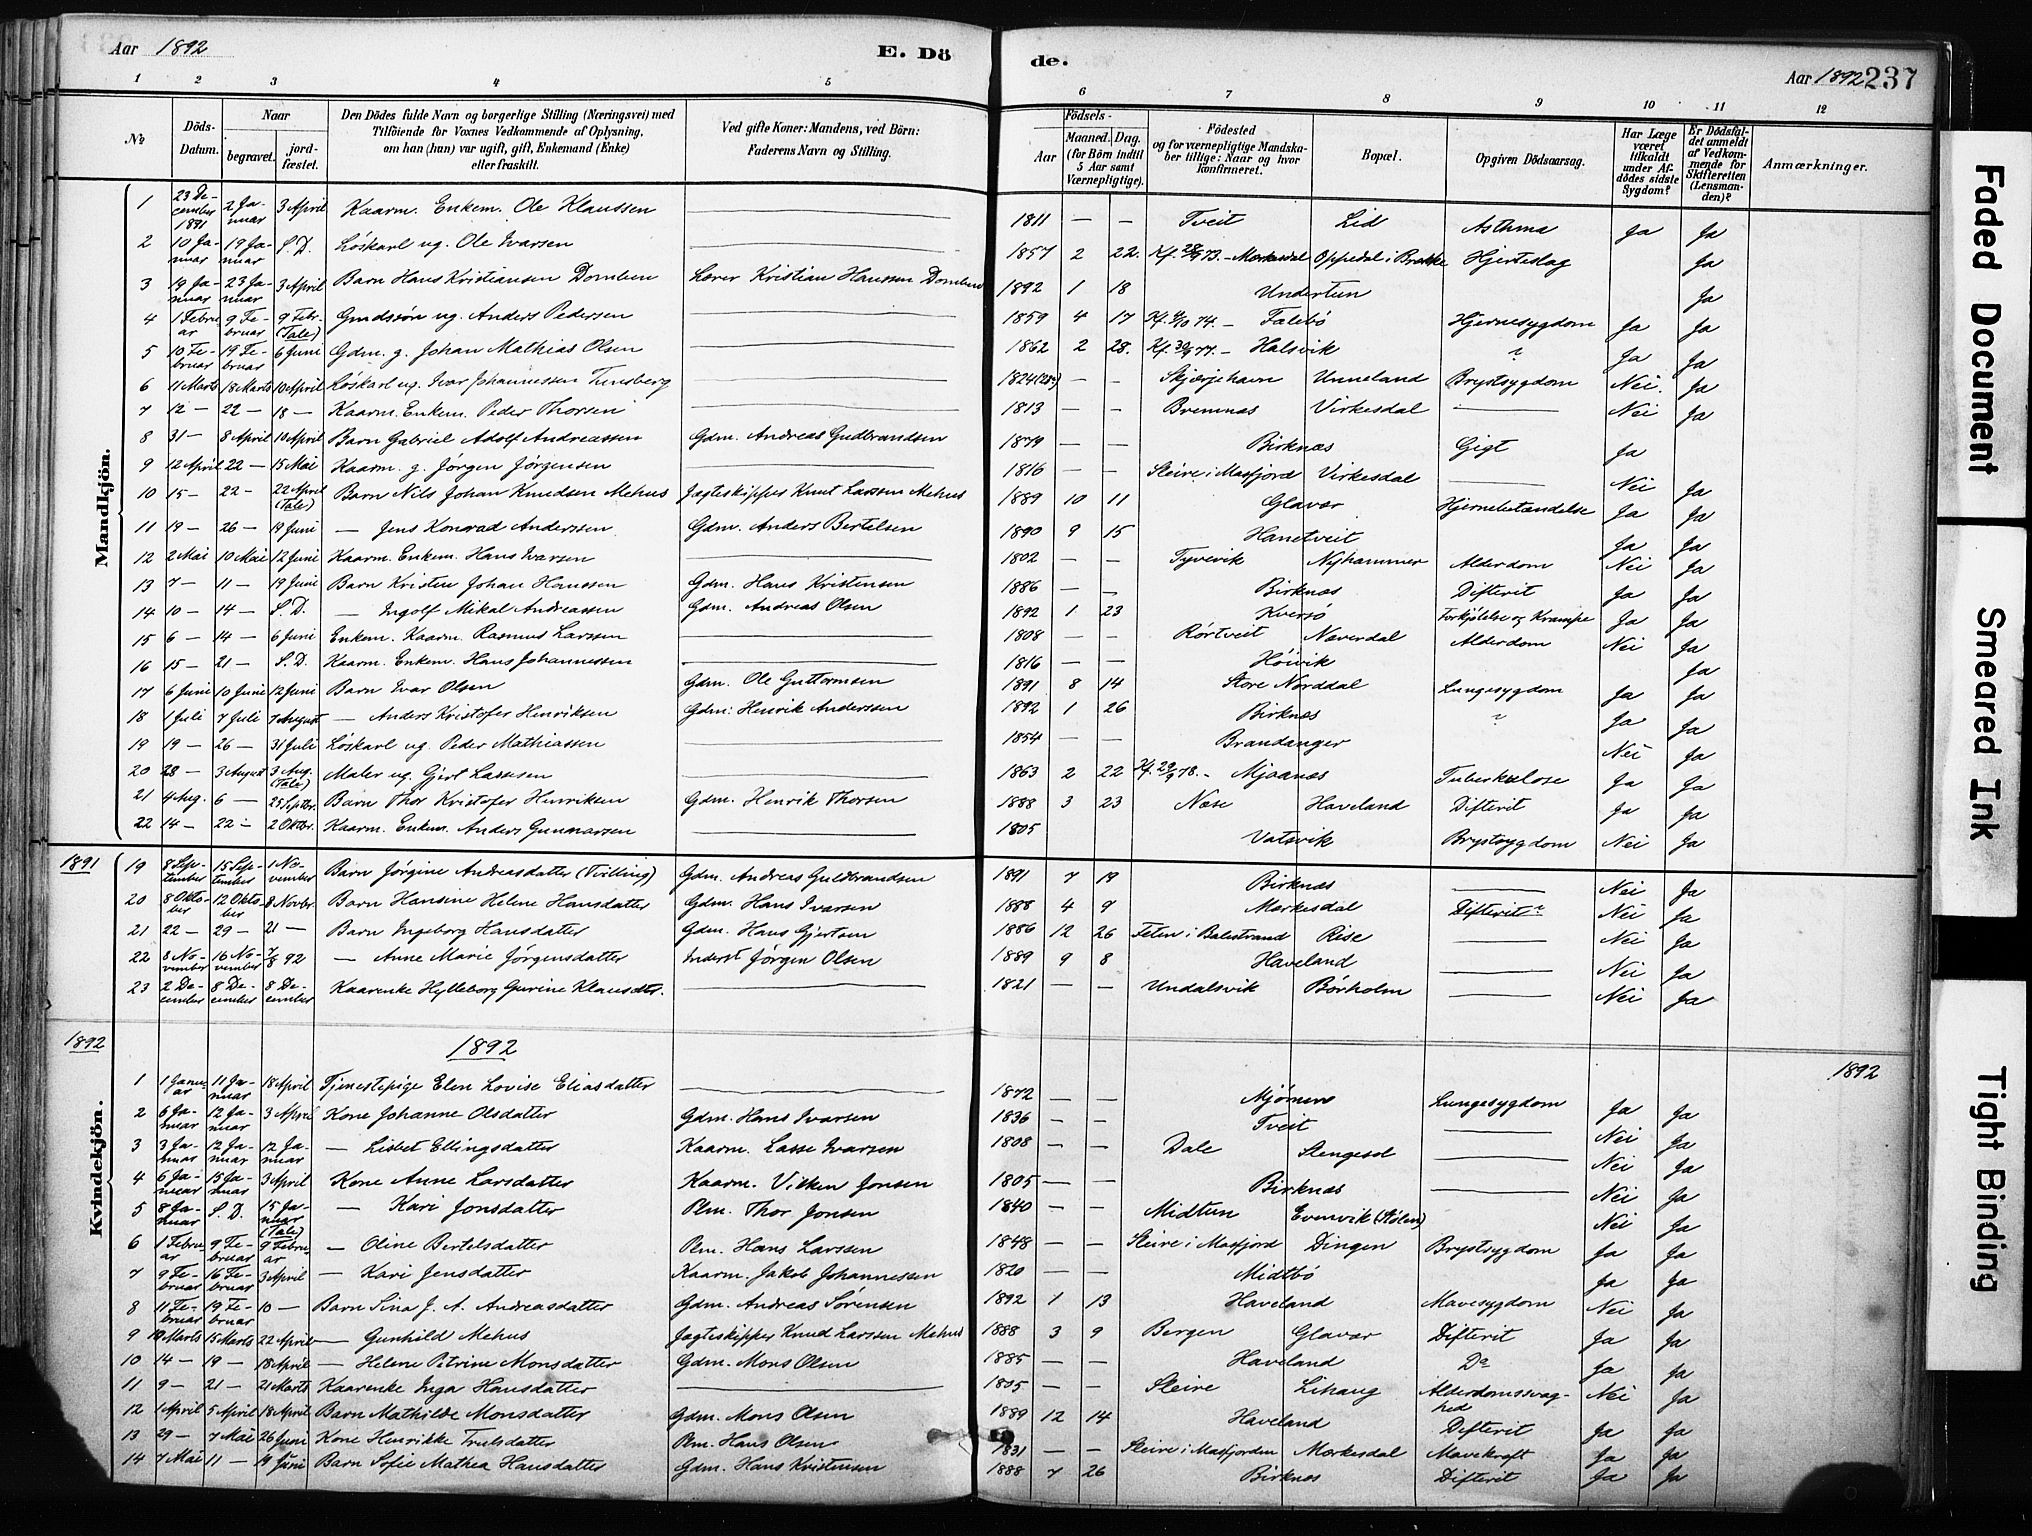 Aar 1892 E. Dö de. Aar 1892 237
1 2 3 4 5 6 7 8 9 10 11 12
№ Döds-Datum. Naar begravet. jordfæstet. Den Dödes fulde Navn og borgerlige Stilling (Næringsvei) med Tilföiende for Voxnes Vedkommende af Oplysning, om han (hun) var ugift, gift, Enkemand (Enke) eller fraskilt. Ved gifte Koner: Mandens, ved Börn: Faderens Navn og Stilling. Födsels- Aar Maaned. Dag. (for Börn indtil 5 Aar samt Værnepligtige). Födested og for værnepligtige Mandskaber tillige: Naar og hvor Konfirmeret. Bopæl. Opgiven Dödsaarsag. Har Læge været tilkaldt under Afdödes sidste Sygdom? Er Dödsfaldet anmeldt af Vedkommende for Skifteretten (Lensmanden)? Anmærkninger.
Mandkjön.
1 23 December 1891 2 Januar 3 April Kaarm. Enkem. Ole Klaussen — 1811 — — Tveit Lid Asthma Ja Ja
2 10 Januar 19 Januar S. D. Löskarl ug. Ole Ivarsen — 1857 2 22. Kf. 28/9 73. – Mærkesdal Oppedal i Brekke Hjerteslag Ja
3 19 Januar 23 Januar 3 April Barn Hans Kristiansen Domben Lærer Kristian Hanssen Domben 1892 1 18 Undertun Ja
4 1 Februar 9 Februar 9 Febr. (Tale) Gmdssøn ug. Anders Pedersen — 1859 4 17 74. – Falebö Hjernesygdom Ja Ja
5 10 Februar 19 Februar 6 Juni Gdm. g. Johan Mathias Olsen — 1862 2 28. Kf. 30/9 77. – Halsvik ? Ja Ja
6 11 Marts 18 Marts 10 April Löskarl ug. Ivar Johannessen Tunsberg — 1824 — — Skjærjehavn Unneland Brystsygdom Nei. Ja
7 12 — 22 — 18 — Kaarm. Enkem. Peder Thorsen — 1813 — — Bremnæs Virkesdal — Nei Ja
8 31 — 8 April 10 April Barn Gabriel Adolf Andreassen Gdm. Andreas Gudbrandsen 1879 — — Birknæs Gigt Ja
9 12 April 22 — 15 Mai Kaarm. g. Jörgen Jörgensen — 1816 — — Sleire i Masfjord Virkesdal — Nei Ja
10 15 — 22 — 22 April (Tale) Barn Nils Johan Knudsen Mehus Jagteskipper Knut Larssen Mehus 1889 10 11 Glavær Hjernebetændelse Ja Ja
11 19 — 26 — 19 Juni — Jens Konrad Anderssen Gdm. Anders Bertelsen 1890 9 15 Hanetveit Ja Ja
12 2 Mai 10 Mai 12 Juni Kaarm. Enkem. Hans Ivarsen — 1802 — — Tyvevik Nyhammer Alderdom Nei Ja
13 7 — 11 — 19 Juni Barn Kristen Johan Hanssen Gdm. Hans Kristensen 1886 — — Birknæs Difterit Ja Ja
14 10 — 14 — S. D. — Ingolf Mikal Andreassen Gdm. Andreas Olsen 1892 1 23 Kversö Forkjölelse og Krampe Ja Ja
15 6 — 14 — 6 Juni Enkem. Kaarm. Rasmus Larssen — 1808 — — Rörtveit Næverdal Alderdom Nei Ja
16 15 — 21 — S. D. Kaarm. Enkem. Hans Johannessen — 1816 — — Höivik Ja
17 6 Juni 10 Juni 12 Juni Barn Ivar Olsen Gdm. Ole Guttormsen 1891 8 14 Store Norddal Lungesygdom Ja Ja
18 1 Juli 7 Juli 7 August — Anders Kristofer Henriksen Gdm: Henrik Anderssen 1892 1 26 Birknæs ? Ja Ja
19 19 — 26 — 31 Juli Löskarl ug. Peder Mathiassen — 1854 — — Brandanger Nei Ja
20 28 — 3 August 3 Aug. (Tale) Maler ug. Gjert Lassesen — 1863 2 22 Kf. 29/9 78. – Mjaanæs Tuberkulose Ja Ja
21 4 Aug. 6 — 25 Septbr. Barn Thor Kristofer Henriksen Gdm. Henrik Thorsen 1888 3 23 Næse Haveland Difterit Ja Ja
22 14 — 22 — 2 Oktbr. Kaarm. Enkem. Anders Gunnarsen — 1805 Vatsvik Brystsygdom Nei Ja
1891
19 8 September 15 September 1 November Barn Jörgine Andreasdatter (Tvilling) Gdm. Andreas Guldbrandsen 1891 7 19 Birknæs — Nei Ja
20 8 Oktober 12 Oktober 8 Novbr. Barn Hansine Helene Hansdatter Gdm. Hans Ivarsen 1888 4 9 Mærkesdal Difterit? Nei Ja
21 22 — 29 — 21 — Barn Ingeborg Hansdatter Gdm. Hans Gjertsen 1886 12 26 Feten i Balestrand Rise — Nei Ja
22 8 November 16 November 7/8 92 — Anne Marie Jörgensdatter Inderst Jörgen Olsen 1889 9 8 Haveland — Nei Ja
23 2 December 8 December 8 December Kaarenke Hylleborg Gurine Klausdtr. 1821 — — Undalsvik Börholm — Nei Ja
1892 1892 1892
Kvindekjön.
1 1 Januar 11 Januar 18 April Tjenestepige Elen Lovise Eliasdatter — 1872 — — Mjömen Lungesygdom Ja Ja
2 6 Januar 12 Januar 3 April Kone Johanne Olsdatter Gdm. Hans Ivarsen 1836 — — Tveit — Nei Ja
3 3 Januar 12 Januar 12 Januar — Lisbet Ellingsdatter Kaarm. Lasse Ivarsen 1808 — — Dale Stengesol — Nei Ja
4 6 Januar 15 Januar 3 April Kone Anne Larsdatter Kaarm. Vilken Jonsen 1805 — — Birknæs — Nei Ja
5 8 Januar S. D. 15 Januar (Tale) — Kari Jonsdatter Plm. Thor Jonsen 1840 — — Midtun Evenvik Nei Ja
6 1 Februar 9 Februar 9 Februar — Oline Bertelsdatter Plm. Hans Larssen 1848 — — Sleire i Masfjord Dingen Brystsygdom Ja Ja
7 9 Februar 16 Februar 3 April — Kari Jensdatter Kaarm. Jakob Johannessen 1820 — — Midtbö Ja Ja
8 11 Februar 19 Februar 10 — Barn Sina J. A. Andreasdatter Gdm. Andreas Sörensen 1892 1 13 Haveland Mavesygdom Nei Ja
9 10 Marts 15 Marts 22 April — Gunhild Mehus Jagteskipper Knud Larssen Mehus 1888 3 9 Bergen Glavær Difterit Ja Ja
10 14 — 19 — 18 April — Helene Petrine Monsdatter Gdm. Mons Olsen 1885 — — Haveland Do Ja Ja
11 9 — 21 — 21 Marts Kaarenke Inga Hansdatter — 1805 — — Sleire Lihaug Alderdomssvaghed Nei Ja
12 1 April 5 April 18 April Barn Mathilde Monsdatter Gdm. Mons Olsen 1889 12 14 Haveland Difterit Ja Ja
13 29 — 7 Mai 26 Juni Kone Henrikke Trulsdatter Plm. Hans Olsen 1831 — — Sleire i Masfjorden Mærkesdal Mavekræft Ja Ja
14 7 Mai 11 — 19 Juni Barn Sofie Mathea Hansdatter Gdm. Hans Kristensen 1888 7 26 Birknæs Difterit Ja Ja
Faded Document
Smeared Ink
Tight Binding